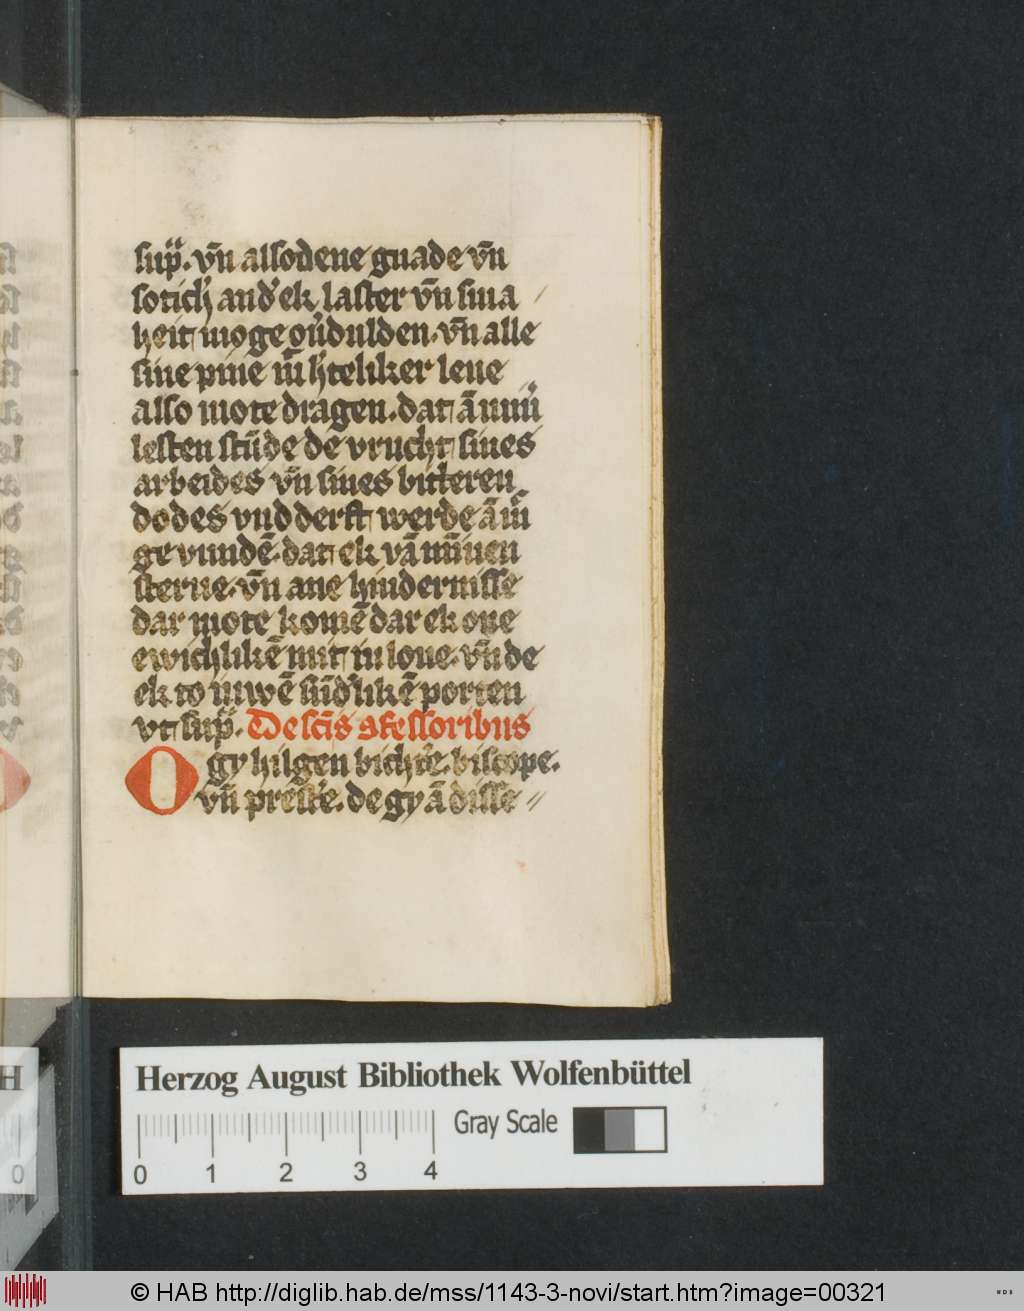 sup̃. vn̄ alsodene gnade vn̄
sotich and'ek laster vn̄ sma /
heit moge vñdulden. vn̄ alle
sine pine m̄ h'teliker leue
also mote dragen. dat ā
lesten stūde de vrucht sines
arbeides vn̄ sines bitteren
dodes vnd derst werde ā
ge vundē. dat ek vā
sterue. vn̄ ane hindernisse
dar mote komē dar ek one
ewichlikē mit in loue. vn̄ de
ek to iuwē sūd'likē porten
vt sup̃. De sc̄is ꝯfessoribus
O gy hilgen bichťe. biscope.
vn̄ preste. de gy ā disse //
Herzog August Bibliothek Wolfenbüttel
Gray Scale
0 1 2 3 4
H
0
© HAB http://diglib.hab.de/mss/1143-3-novi/start.htm?image=00321